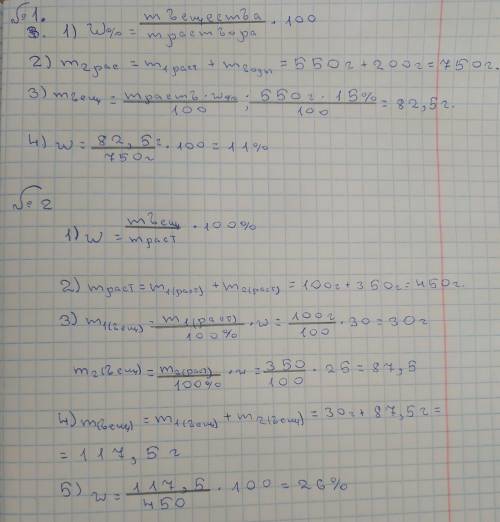 №1.
1) W% = m вещества / m раствора · 100
2) m2рас = m1раст + mводы = 550г + 200г = 750г.
3) mвещ = mраств · w% / 100 ; 550г · 15% / 100 = 82,5г.
4) w = 82,5г / 750г · 100 = 11%
№2
1) w = mвещ / mраст · 100%
2) mраст = m1(раст) + m2(раст) = 100г + 350г = 450г.
3) m1(вещ) = m1(раст) / 100% · w = 100г / 100 · 30 = 30г
m2(вещ) = m2(раст) / 100% · w = 350 / 100 · 25 = 87,5
4) m(вещ) = m1(вещ) + m2(вещ) = 30г + 87,5г =
= 117,5 г
5) w = 117,5 / 450 · 100 = 26%